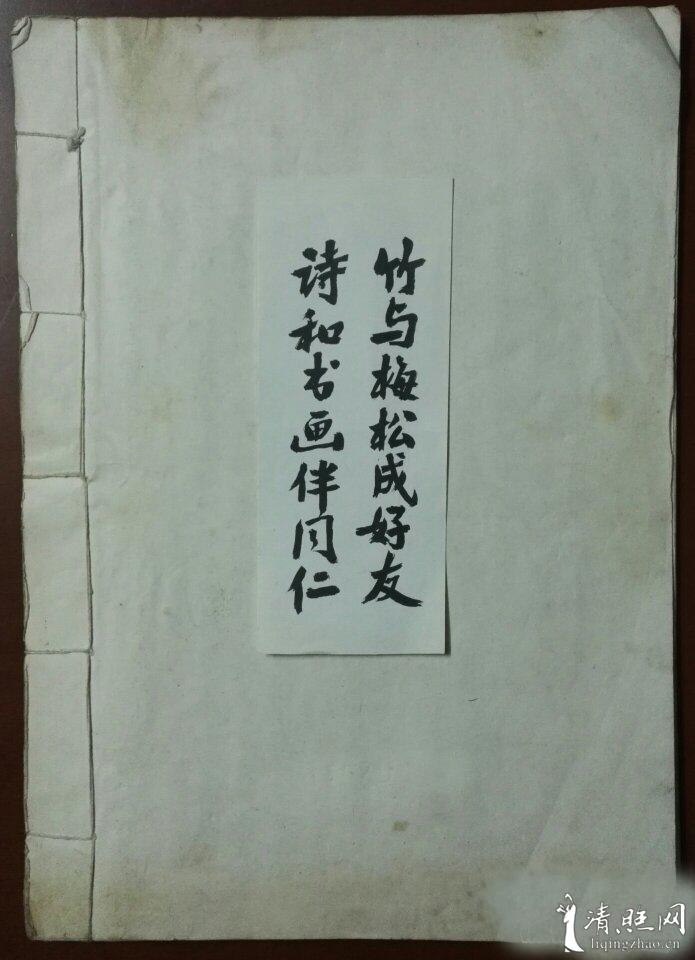 竹与梅松成好友
诗和书画伴同仁
清照网
liqingzhao.cn